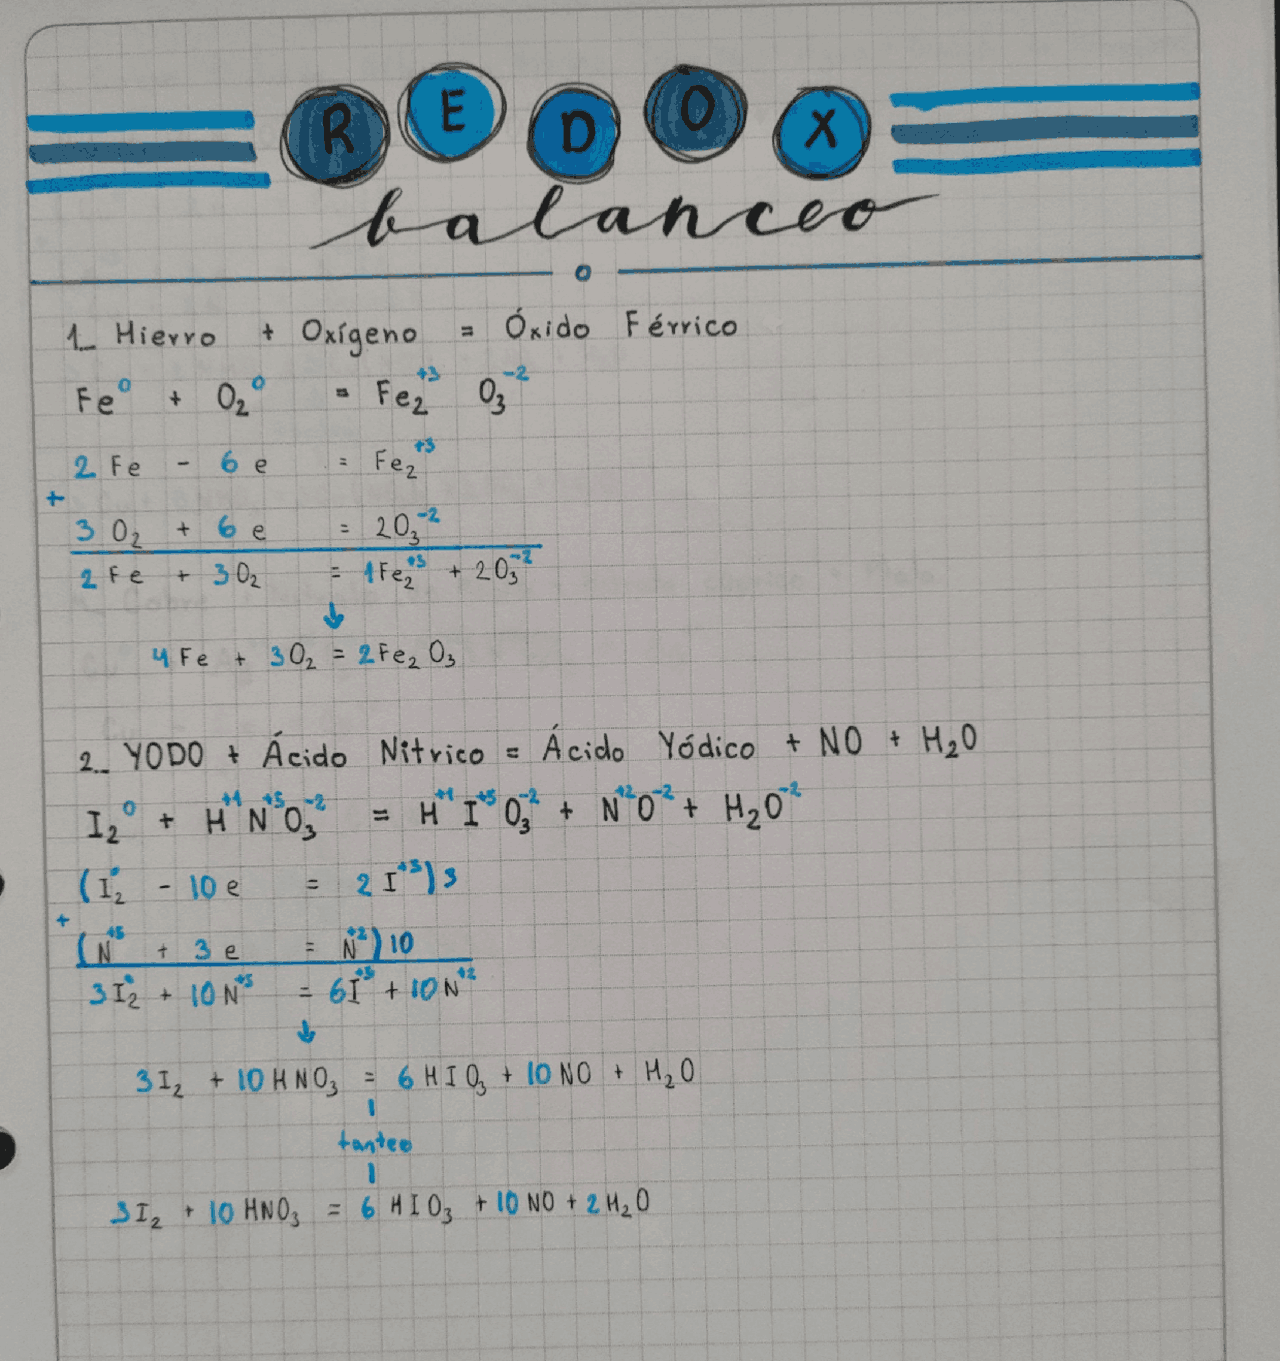 REDOX
balanceo
1_ Hierro + Oxígeno = Óxido Férrico
Fe⁰ + O₂⁰ = Fe₂⁺³ O₃⁻²
2 Fe - 6 e = Fe₂⁺³
+
3 O₂ + 6 e = 2O₃⁻²
2 Fe + 3O₂ = 1Fe₂⁺³ + 2O₃⁻²
↓
4 Fe + 3O₂ = 2Fe₂O₃
2_ YODO + Ácido Nítrico = Ácido Yódico + NO + H₂O
I₂⁰ + H⁺¹N⁺⁵O₃⁻² = H⁺¹I⁺⁵O₃⁻² + N⁺²O⁻² + H₂O⁻²
(I₂⁰ - 10 e = 2 I⁺⁵) 3
+
(N⁺⁵ + 3 e = N⁺²) 10
3I₂⁰ + 10 N⁺⁵ = 6I⁺⁵ + 10 N⁺²
↓
3I₂ + 10 HNO₃ = 6 HIO₃ + 10 NO + H₂O
tanteo
3I₂ + 10 HNO₃ = 6 HIO₃ + 10 NO + 2 H₂O